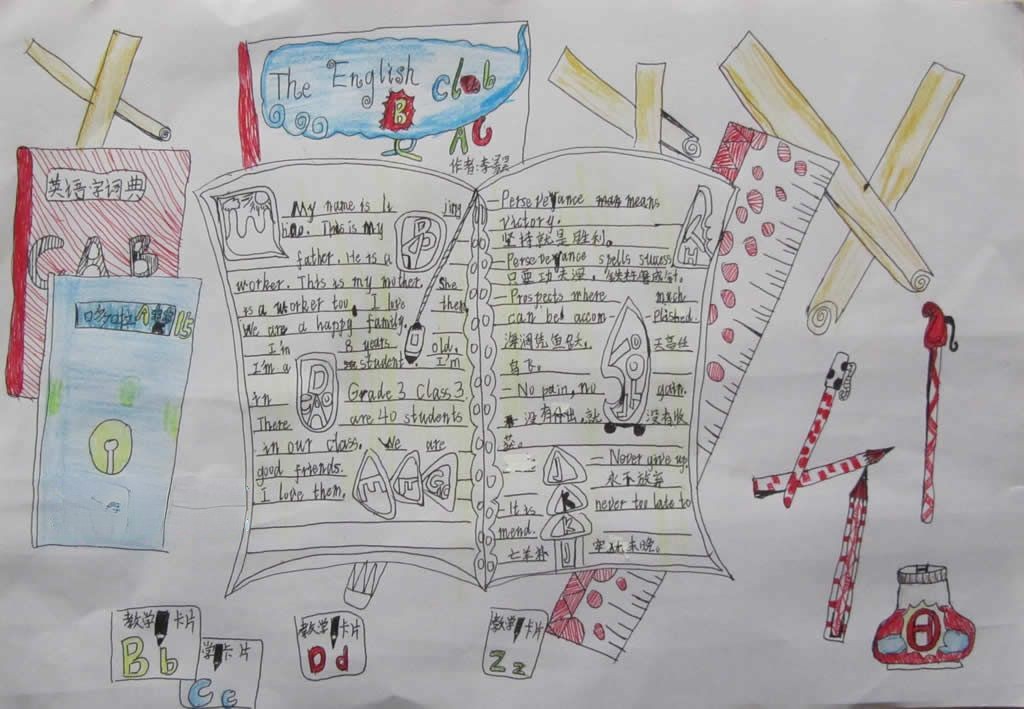 The English
Club
B
AC
作者:李
英语字词典
CAB
My name is li jing
hao. This is my
father. He is a
worker. This is my mother. She
is a worker too. I love them
We are a happy family.
I'm 8 years old.
I'm a student. I'm
in Grade 3 Class 3.
There are 40 students
in our class. We are
good friends.
I love them.
B
D
E F G
— Perseveyance means
victory.
坚持就是胜利。
— Perseveyance spells success
只要功夫深,铁杵磨成针。
— Prospects where much
can be accom- Plished.
海阔凭鱼跃, 天高任
鸟飞。
— No pain, no gain.
没有付出,就没有收
— Never give up
永不放弃
— It is never too late to
mend.
亡羊补牢,未晚。
H
J
K
教学卡片
Bb
学卡片
Cc
教学卡片
Dd
教学卡片
Zz